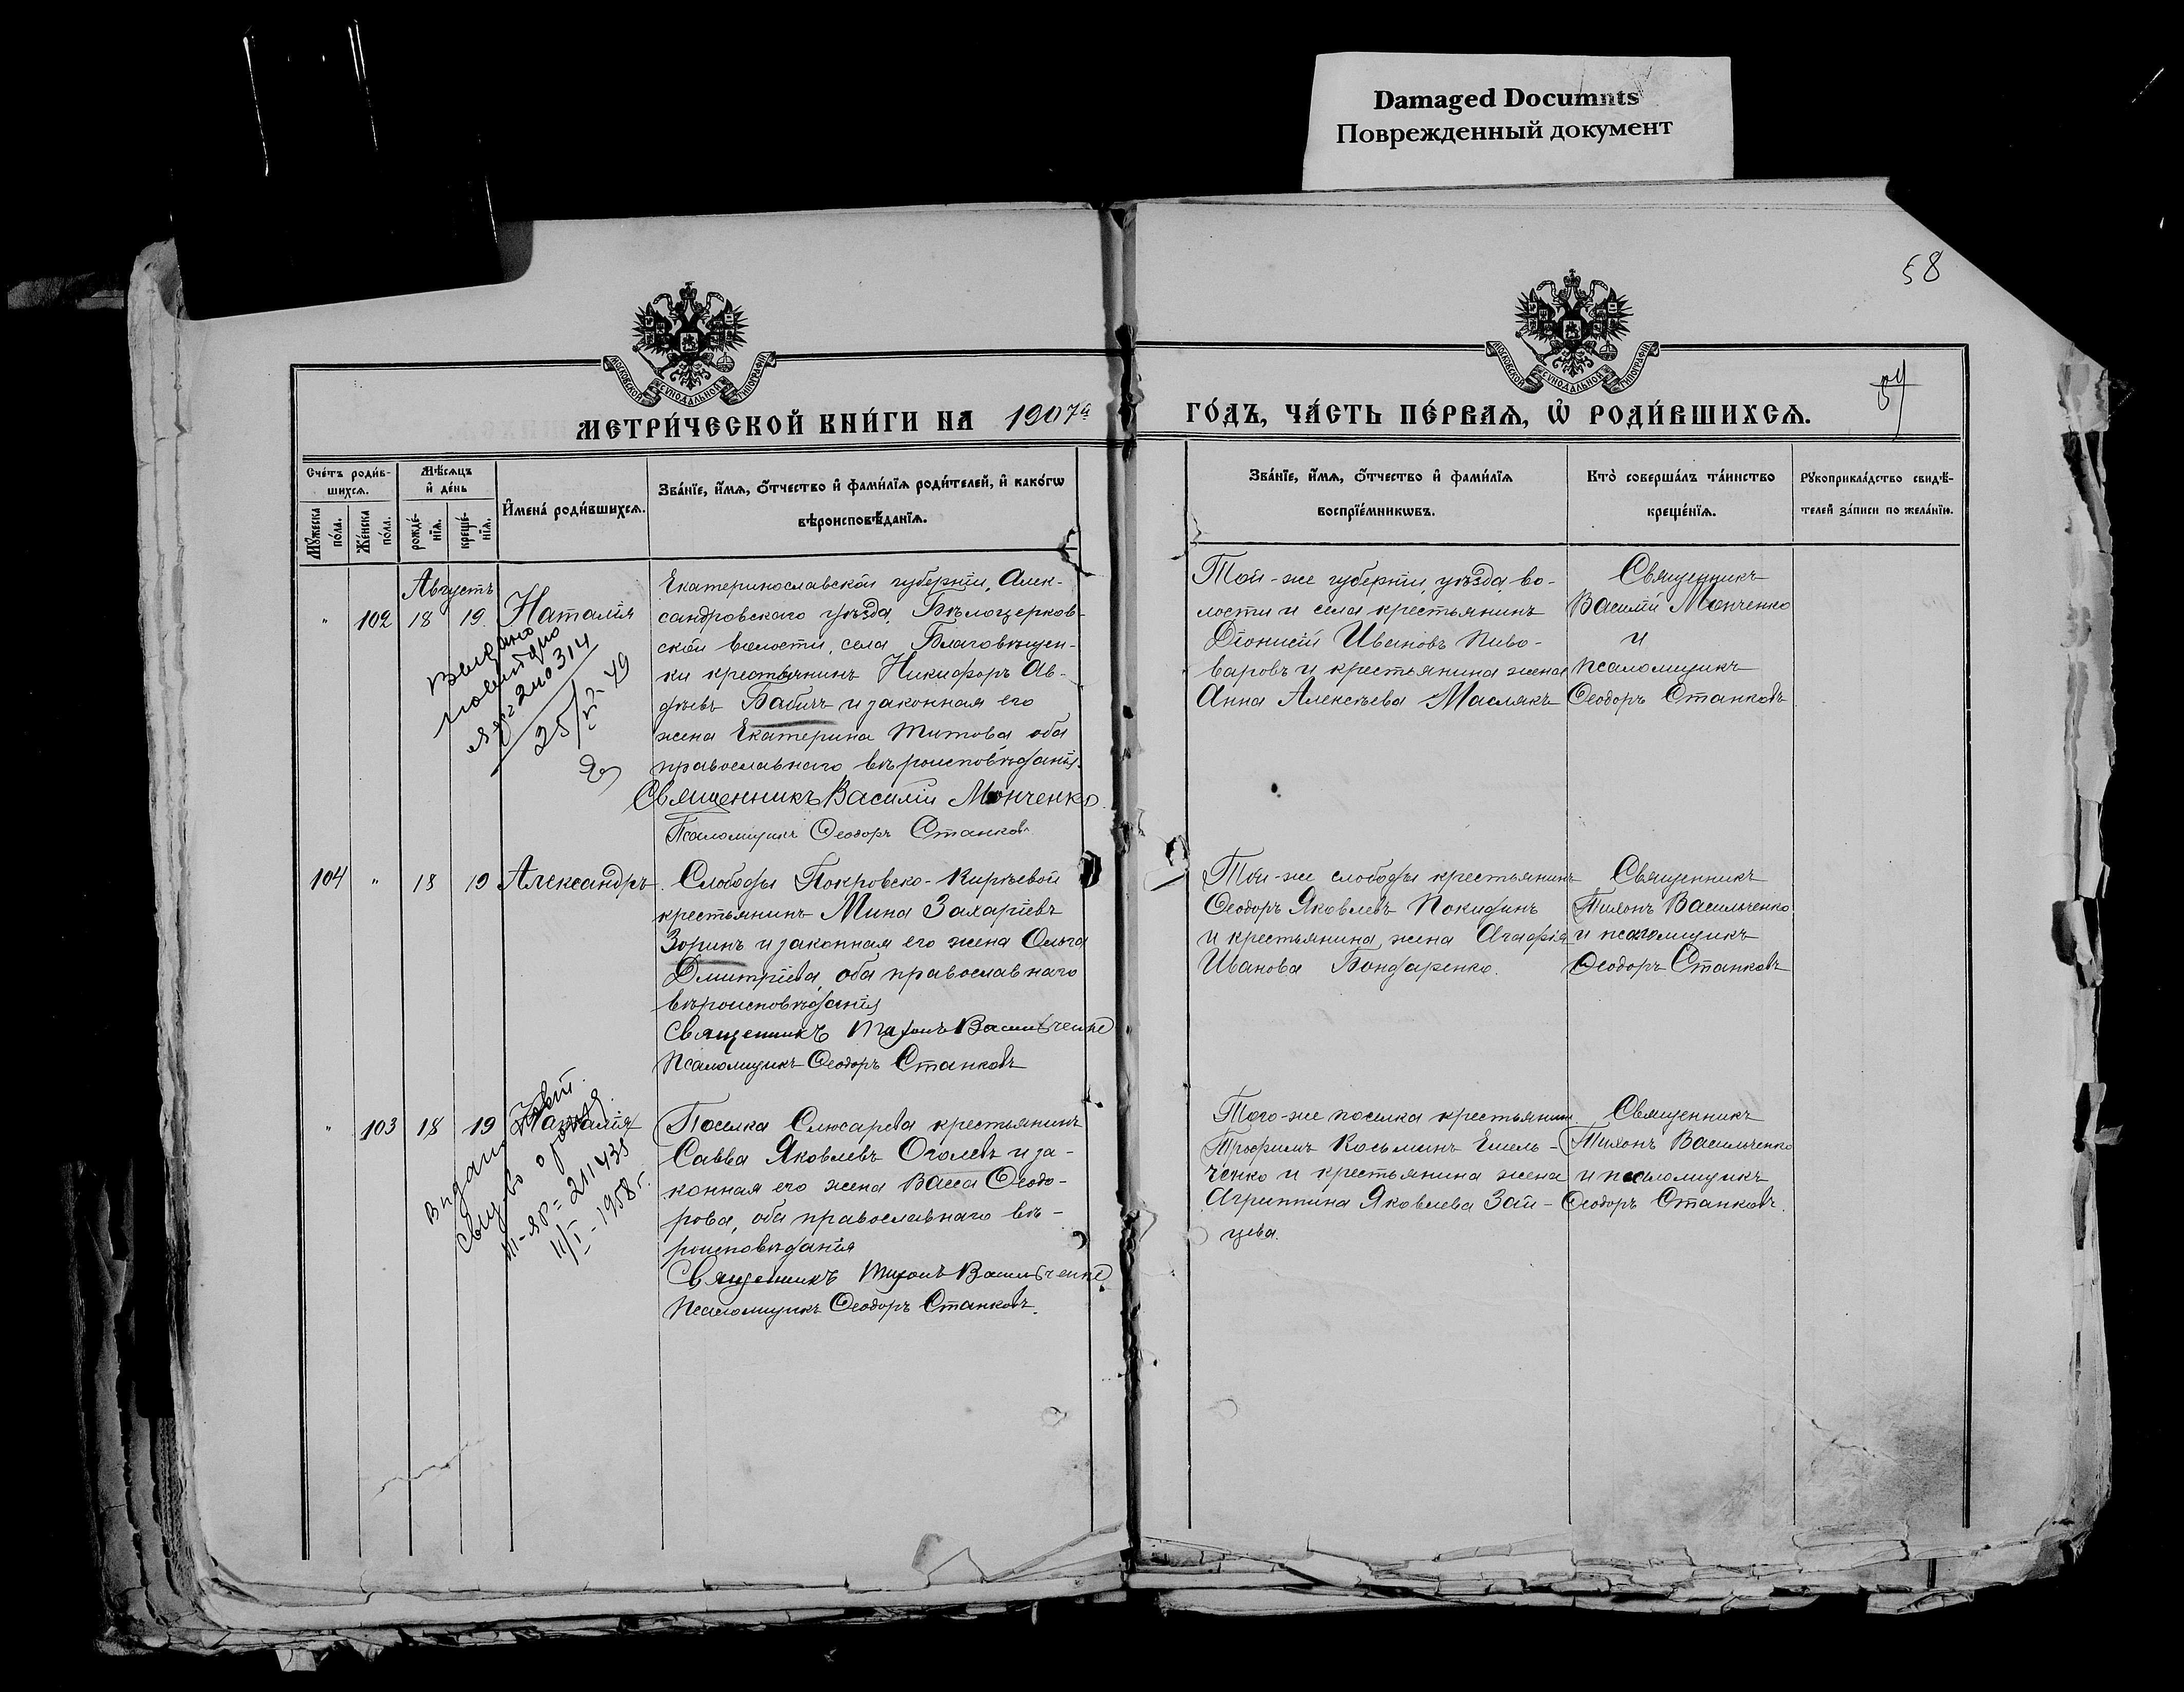 Damaged Documnts
Поврежденный документ
58
МОСКОВСКОЙ СУНОДАЛЬНОЙ ТИПОГРАФІИ
МОСКОВСКОЙ СУНОДАЛЬНОЙ ТИПОГРАФІИ
МЕТРИ́ЧЕСКОЙ КНИ́ГИ НА 1907й
ГО́ДЪ, ЧА́СТЬ ПЕ́РВАѦ, Ѡ РОДИ́ВШИХСѦ.
Сче́тъ роди́в-
шихсѧ.
Мꙋ́жеска по́ла.
Же́нска по́ла.
Мѣ́сѧцъ
и҆ де́нь
рожде́-
нїѧ.
креще́-
нїѧ.
И҆мена̀ роди́вшихсѧ.
Зва́нїе, и҆́мѧ, ѻ҆́тчество и҆ фами́лїѧ роди́телей, и҆ како́гѡ
вѣроисповѣ́данїѧ.
Зва́нїе, и҆́мѧ, ѻ҆́тчество и҆ фами́лїѧ
воспрїе́мникѡвъ.
Кто̀ соверша́лъ та́инство
креще́нїѧ.
Рꙋкоприкла́дство свидѣ́-
телей за́писи по жела́нїю.
Августъ
" 102 18 19. Наталія
Екатеринославской губерніи, Алек-
сандровскаго уѣзда, Бѣлоцерков-
ской волости, села Благовѣщен-
ки крестьянинъ Никифоръ Ав-
дѣевъ Бабичъ и законная его
жена Екатерина Титова оба
православнаго вѣроисповѣданія.
Священникъ Василій Монченко.
Псаломщикъ Ѳеодоръ Станковъ
Выдано
повторно
240314
25/V-49
Той-же губерніи, уѣзда, во-
лости и села крестьянинъ
Діонисій Ивановъ Пиво-
варовъ и крестьянина жена
Анна Алексѣева Маслякъ
Священникъ
Василій Монченко
и
псаломщикъ
Ѳеодоръ Станковъ
104 " 18 19 Александръ.
Слободы Покровско-Кирѣевой
крестьянинъ Мина Захаріевъ
Зоринъ и законная его жена Ольга
Дмитріева, оба православнаго
вѣроисповѣданія
Священникъ Тихонъ Васильченко
Псаломщикъ Ѳеодоръ Станковъ
Той-же слободы крестьянинъ
Ѳеодоръ Яковлевъ Покидинъ
и крестьянина, жена Агафія
Иванова Бондаренко.
Священникъ
Тихонъ Васильченко
и псаломщикъ
Ѳеодоръ Станковъ
" 103 18 19 Наталія
Поселка Слюсарева крестьянинъ
Савва Яковлевъ Оголевъ и за-
конная его жена Васса Ѳеодо-
рова, оба православнаго вѣ-
роисповѣданія
Священникъ Тихонъ Васильченко
Псаломщикъ Ѳеодоръ Станковъ.
Видано
свидтво о
III-ЯР=211435
11/I-1958 г.
Того-же поселка крестьянинъ
Трофимъ Косьминъ Емель-
ченко и крестьянина жена
Агриппина Яковлева Зай-
цева.
Священникъ
Тихонъ Васильченко
и псаломщикъ
Ѳеодоръ Станковъ.